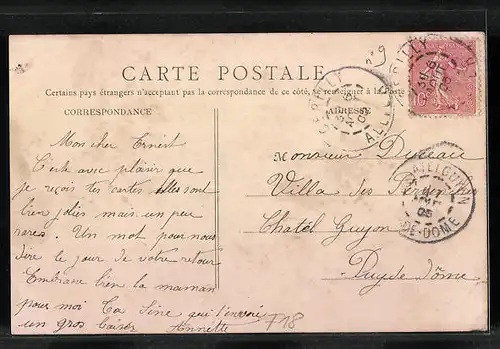 nº 9
CARTE POSTALE
Certains pays étrangers n'acceptant pas la correspondance de ce côté, se renseigner à la Poste
CORRESPONDANCE
ADRESSE
Mon cher Ernest
C'est avec plaisir que
je reçois tes cartes elles sont
bien jolies mais un peu
rares. Un mot pour nous
dire le jour de votre retour
Embrasse bien la maman
pour moi Ta Sine qui t'envoie
un gros baiser Annette
Monsieur
Villa des
Chatel Guyon
Puy de Dôme
F18